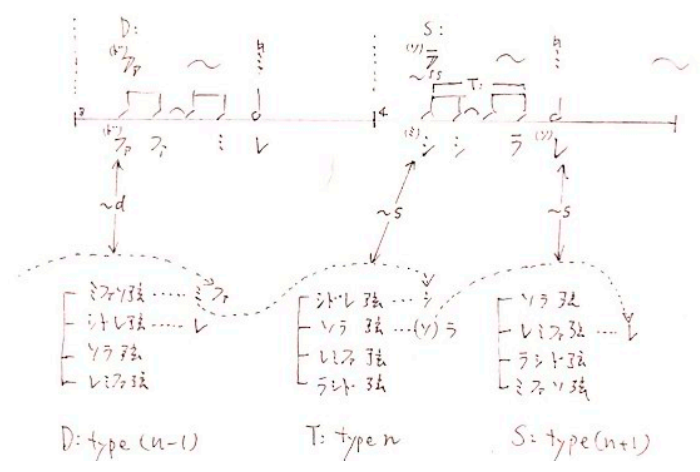 D: S:
(ド) (ソ)
ファ 〜 ラ 〜 〜
~ss T:
3 4
(ド) (ミ) (ソ)
ファ ファ ミ レ シ シ ラ レ
~d ~s ~s
ミファソ弦 …… ミ ファ
シドレ弦 …… レ
ソラ弦
レミファ弦
シドレ弦 … シ
ソラ 弦 …(ソ) ラ
レミファ 弦
ラシド 弦
ソラ 弦
レミファ弦 … レ
ラシド 弦
ミファソ弦
D: type (n-1) T: type n S: type (n+1)